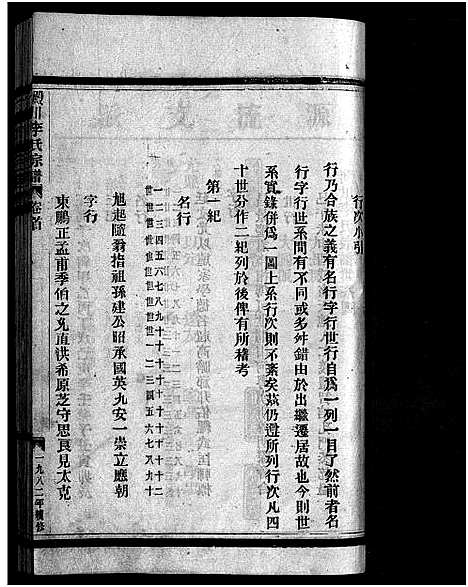 行次小引
行乃合族之義有名行字行世行自爲一列一目了然前者名
行字行世系間有不同或多舛錯由於出繼遷居故也今則世
系實錄併爲一圖上系行次則不紊矣茲仍遵所列行次凡四
十世分作二紀列於後俾有所稽考
第一紀
名行
一世 二世 三世 四世 五世 六世 七世 八世 九世 十世 十一世 十二 十三 十四 十五 十六 十七 十八 十九 二十
旭起隨翁指祖孫建公昭承國英九安一崇立應朝
字行
東鵬正孟甫季伯之兄直洪希原芝守思良見太克
澱川李氏宗譜 卷首
一九八二年續修